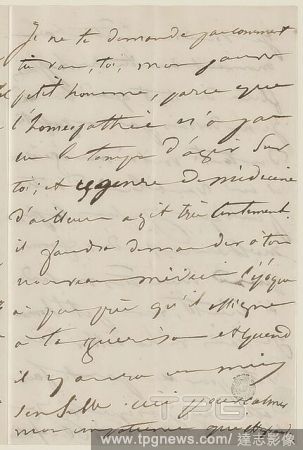 Je ne te demande pas comment
tu vas, toi, mon pauvre
petit homme, parce que
l'homéopathie n'a pas
eu le temps d'agir sur
toi; et ce genre de médecine
d'ailleurs agit très lentement.
il faudra demander à ton
nouveau médecin l'époque
à peu près qu'il assigne
à ta guérison et quand
il y aura un mieux
sensible
mon
TPG
www.tpgnews.com/達志影像